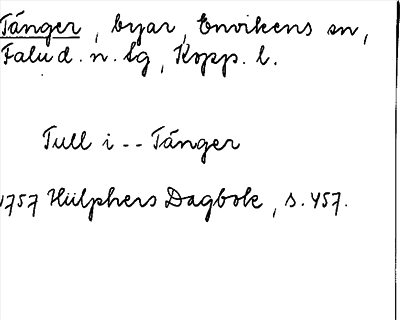 Tänger, byar, Envikens sn,
Falu d. n. tg, Kopp. l.
Tull i -- Tänger
1757 Hülphers Dagbok, s. 457.